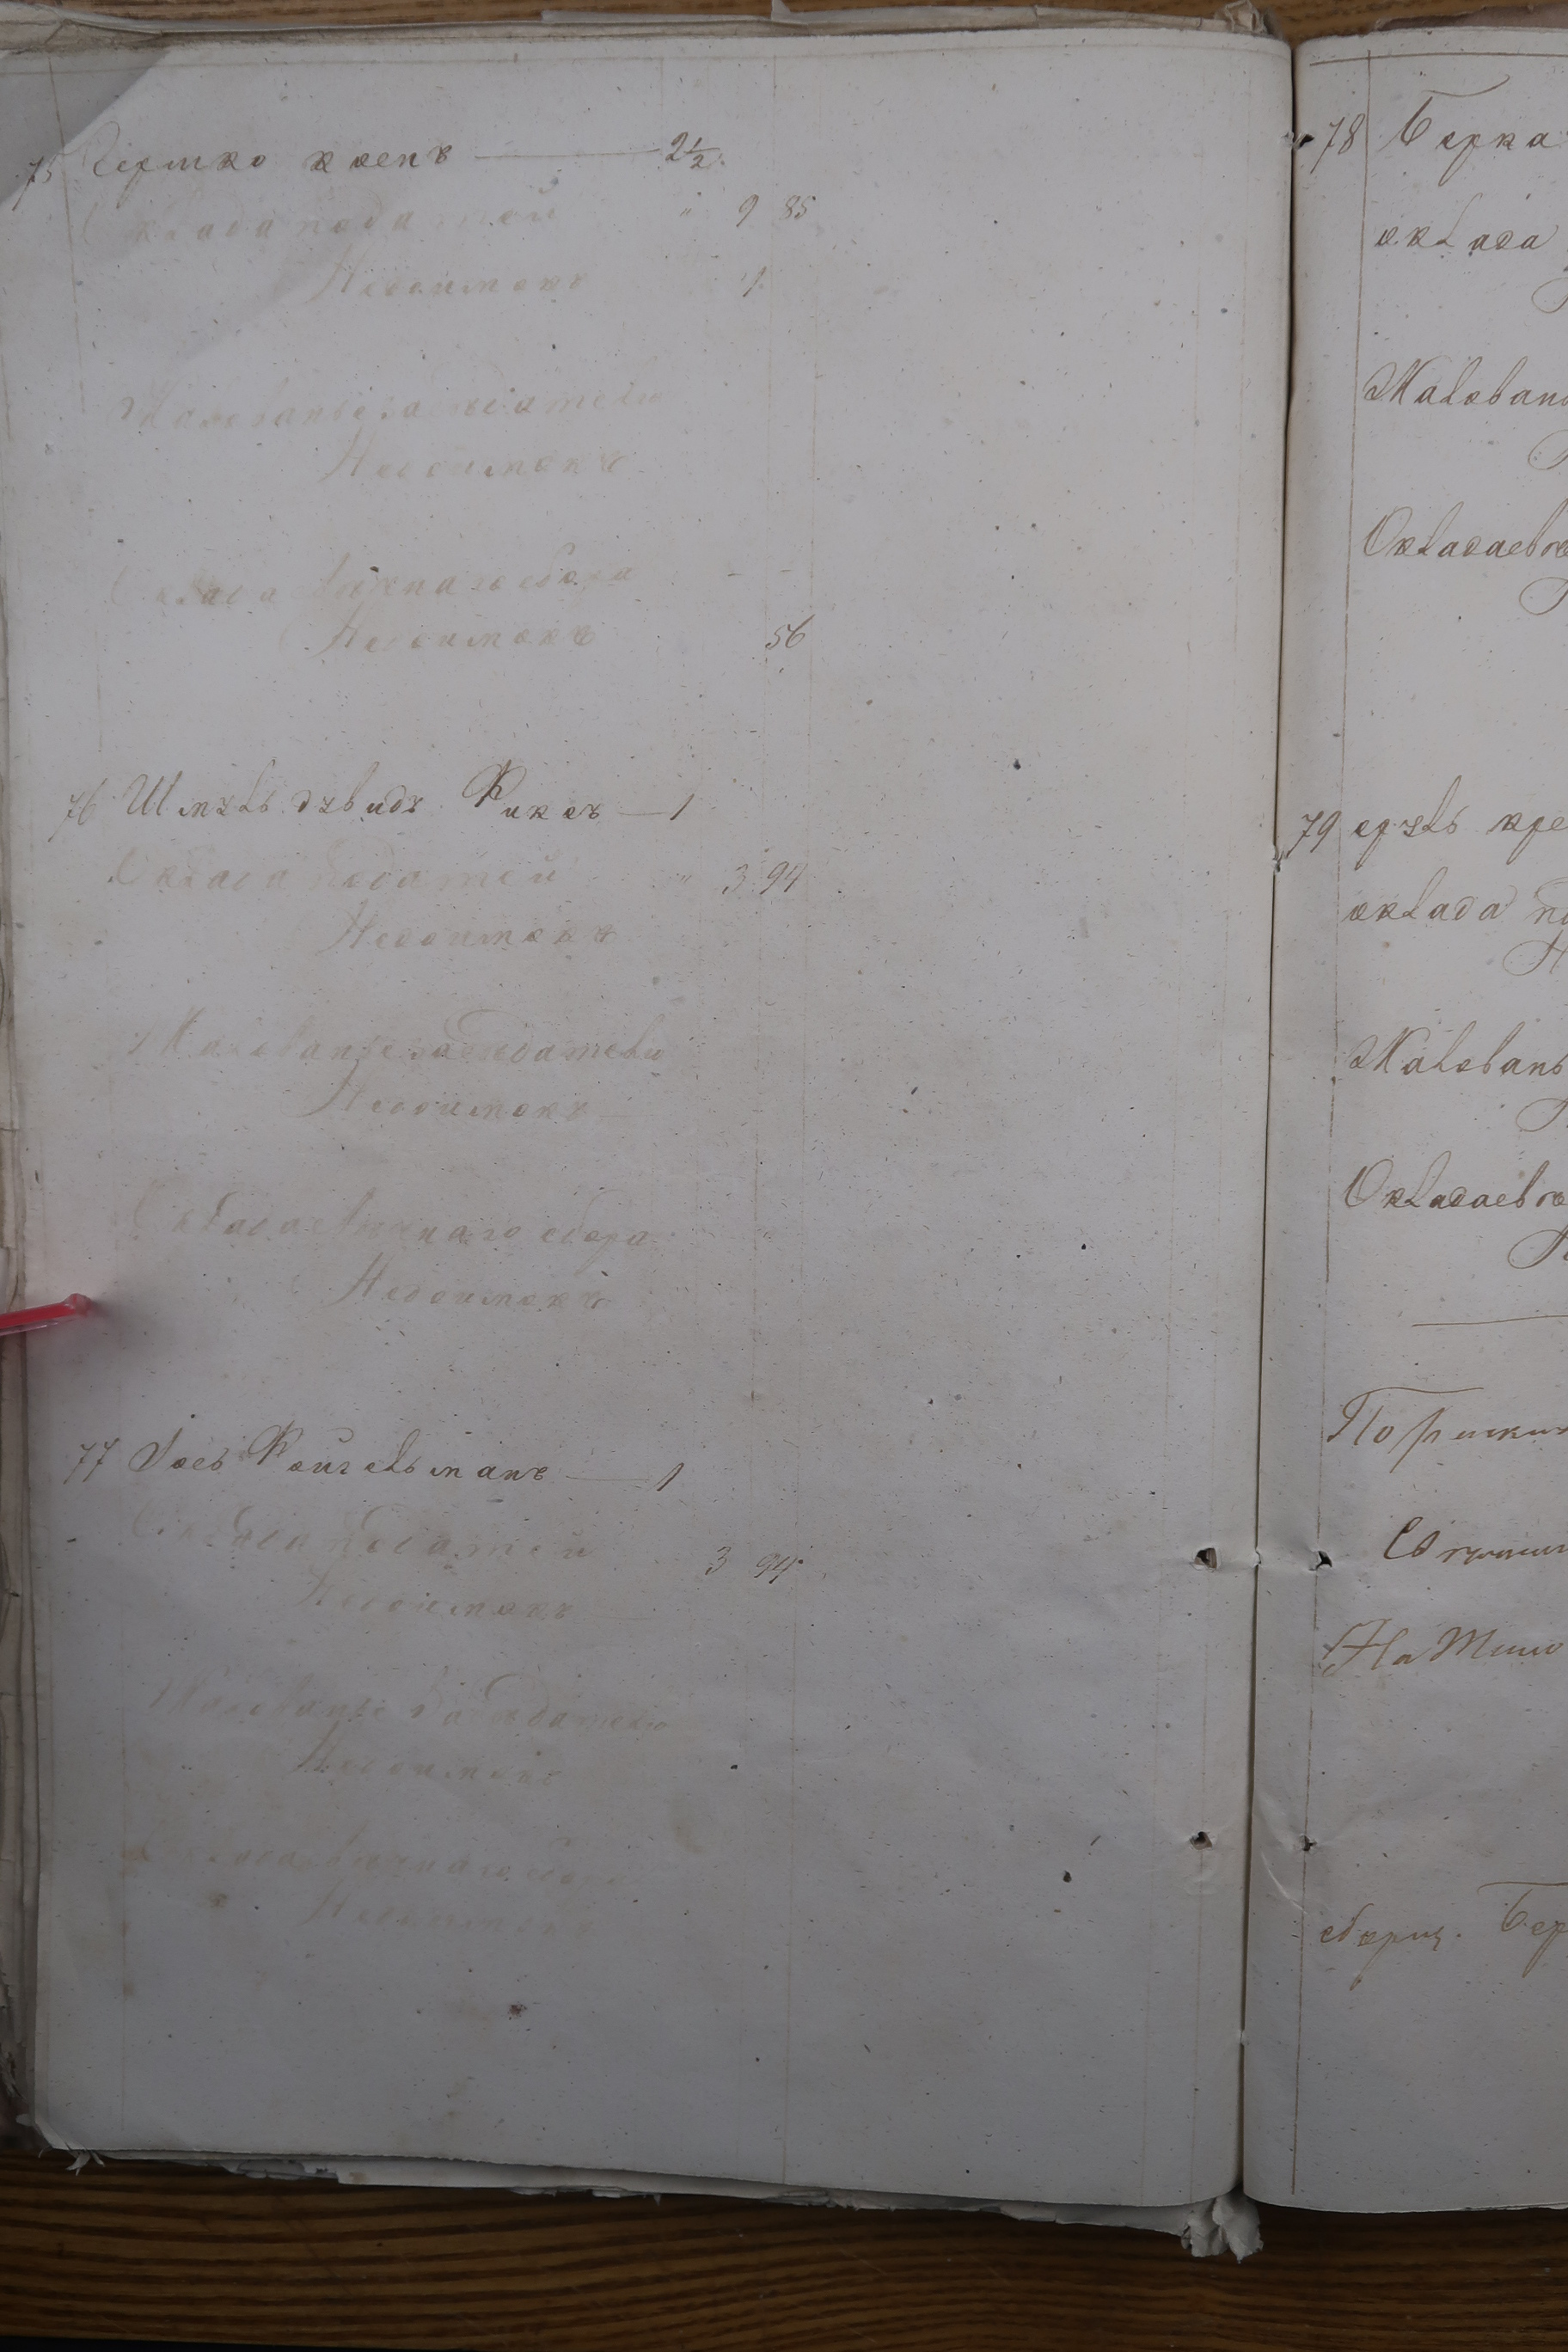 75 Гершко коенъ — 2½
Оклада податей " 9 85
Недоимокъ "
Жалованье засѣдателю
Недоимокъ
Оклада свѣчнаго сбора - -
Недоимокъ 56
76 Шмуль дувидъ Фиксъ — 1
Оклада податей " 3 94
Недоимокъ
Жалованье засѣдателю
Недоимокъ
Оклада свѣчнаго сбора
Недоимокъ
77 Іось — 1
Оклада податей 3 94
Недоимокъ
Жалованье засѣдателю
Недоимокъ
Оклада свѣчнаго сбора
Недоимокъ
78 Берка
оклада
Жалован
Окладасв
79
оклада по
Н
Жаловань
Окладасв
По
На
сборщ. Бер